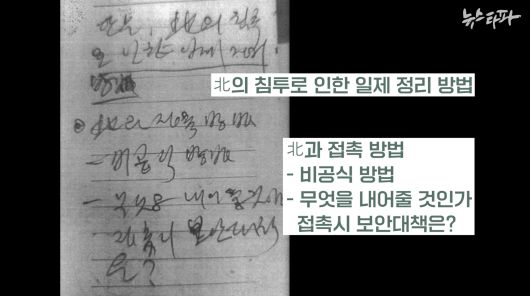 뉴스타파
北의 침투로 인한 일제 정리 방법
北의 침투
로 인한 일제 정리
방법
北과 접촉 방법
- 비공식 방법
- 무엇을 내어줄 것인가
접촉시 보안대책은?
北과 접촉 방법
- 비공식 방법
- 무엇을 내어줄 것인가
- 접촉시 보안대책
은?